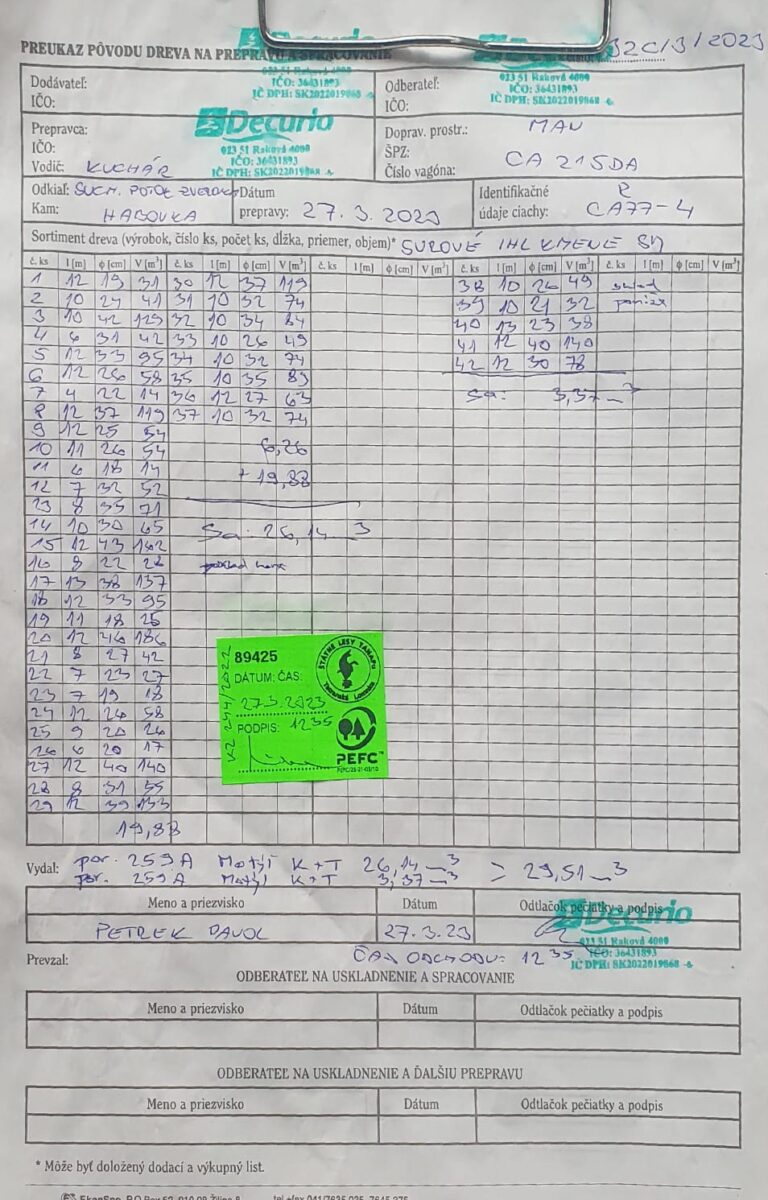 PREUKAZ PÔVODU DREVA NA PREPRAVU A SPRACOVANIE
32C/3/2023
Decurio
023 51 Raková 4000
IČO: 36431893
IČ DPH: SK2022019868
Dodávateľ:
IČO:
023 51 Raková 4000
IČ DPH: SK2022019868
Odberateľ:
IČO:
Prepravca:
IČO:
Vodič: KUCHÁR
Decurio
023 51 Raková 4000
IČO: 36431893
IČ DPH: SK2022019868
Doprav. prostr.: MAN
ŠPZ:
Číslo vagóna: CA 215DA
Odkiaľ: SUCH. POTOK
Kam: HABOVKA
Dátum
prepravy: 27. 3. 2023
Identifikačné R
údaje ciachy: CA77-4
Sortiment dreva (výrobok, číslo ks, počet ks, dĺžka, priemer, objem)* SUROVÉ IHL KMENE SM
č. ks l [m] ϕ [cm] V [m³] č. ks l [m] ϕ [cm] V [m³] č. ks l [m] ϕ [cm] V [m³] č. ks l [m] ϕ [cm] V [m³] č. ks l [m] ϕ [cm] V [m³]
1 12 19 31 30 12 37 119 38 10 26 49 sklad
2 10 24 41 31 10 32 74 39 10 21 32 poniže
3 10 42 129 32 10 34 84 40 13 23 38
4 6 31 42 33 10 26 49 41 12 40 140
5 12 33 95 34 10 32 74 42 12 30 78
6 12 26 58 35 10 35 89
7 4 22 14 36 12 27 63 Sa: 3,37 m3
8 12 37 119 37 10 32 74
9 12 25 54
10 11 26 54 6,26
11 6 18 14
+ 19,88
12 7 32 52
23 8 35 71
14 10 30 65 Sa: 26,14 m3
15 12 43 162
16 8 22 28
17 13 38 137
18 12 33 95
19 11 18 25
20 12 46 186
21 8 27 42
22 7 23 27
23 7 19 18
24 12 26 58
25 9 20 26
26 6 20 17
27 12 40 140
28 8 31 55
29 12 39 133
19,88
KZ 244/2022
89425
DÁTUM: ČAS:
27.3.2023
PODPIS: 1235
ŠTÁTNE LESY TANAPu
Tatranská Lomnica
PEFC™
Vydal: por. 259A Motýl K+T 26,14 m3
por. 259A Motýl K+T 3,37 m3
> 29,51 m3
Meno a priezvisko Dátum Odtlačok pečiatky a podpis
PETREK PAVOL 27.3.23
Decurio
023 51 Raková 4000
IČO: 36431893
IČ DPH: SK2022019868
Prevzal: ČAS ODCHODU: 1235
ODBERATEĽ NA USKLADNENIE A SPRACOVANIE
Meno a priezvisko Dátum Odtlačok pečiatky a podpis
ODBERATEĽ NA USKLADNENIE A ĎALŠIU PREPRAVU
Meno a priezvisko Dátum Odtlačok pečiatky a podpis
* Môže byť doložený dodací a výkupný list.